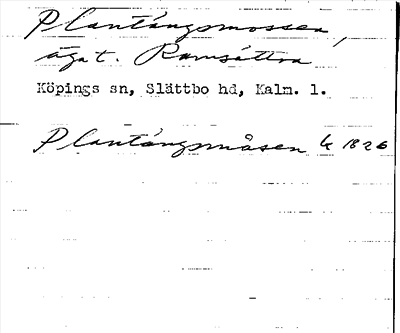 Plantängsmossen,
äga t. Ramsättra
Köpings sn, Slättbo hd, Kalm. l.
Plantängsmåsen k 1826